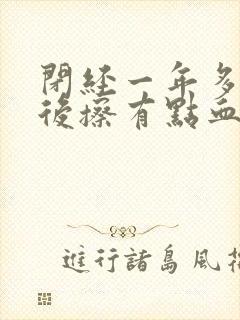 閉經一年多
後擦有點血
進行諸島風